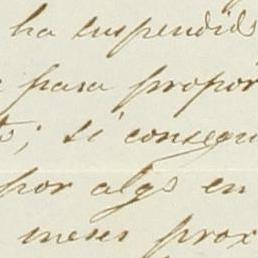 ha suspendido
para propor
; si consegu
por algs en
meses prox